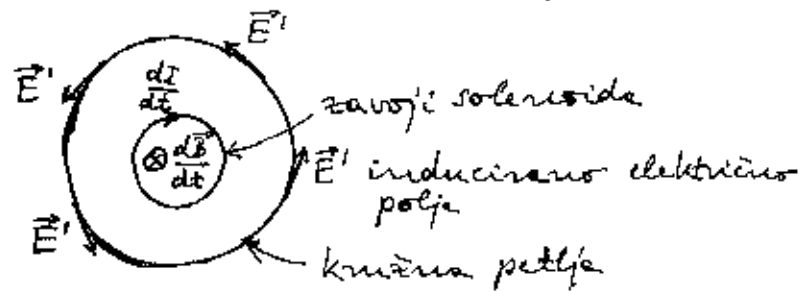 E⃗'
E⃗'
dI
dt
zavoji solenoida
⊗ dB⃗
dt
E⃗' inducirano električno
polje
E⃗'
kružna petlja